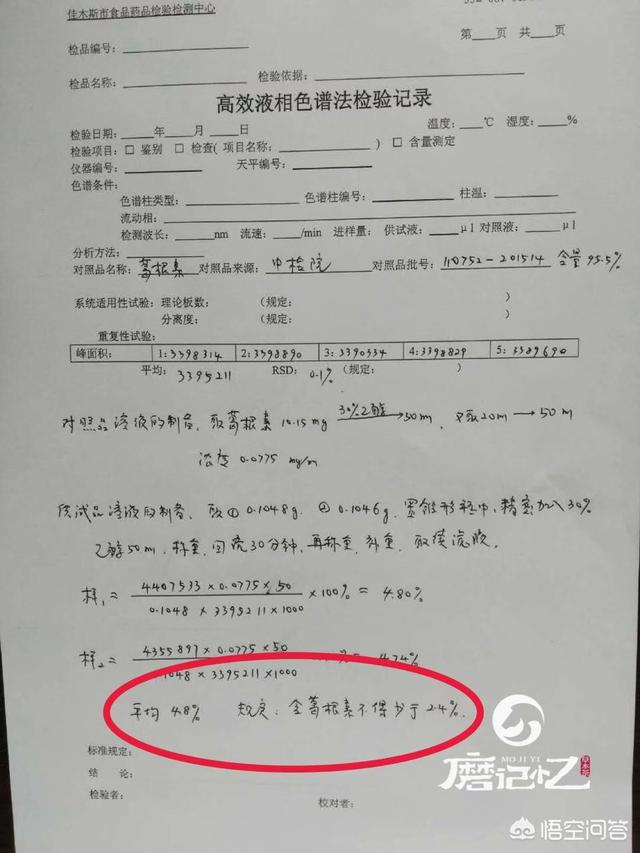 佳木斯市食品药品检验检测中心
第____页 共____页
检品编号:
检品名称: 检验依据:
高效液相色谱法检验记录
检验日期:____年____月____日 温度:____℃ 湿度:____%
检验项目: □ 鉴别 □ 检查( 项目名称: ) □ 含量测定
仪器编号: 天平编号:
色谱条件:
色谱柱类型: 色谱柱编号: 柱温:
流动相:
检测波长:____nm 流速:____/min 进样量: 供试液:____μl 对照液:____μl
分析方法:
对照品名称: 葛根素 对照品来源: 中检院 对照品批号: 110752-201514 含量95.5%
系统适用性试验: 理论板数: (规定: )
分离度: (规定: )
重复性试验:
峰面积: 1: 3398314 2: 3398890 3: 3390334 4: 3398829 5: 3389690
平均: 3395211 RSD: 0.1% (规定: )
对照品溶液的制备, 取葛根素 10.15mg 30%乙醇→50ml, 又取20ml→50ml
浓度 0.0775 mg/ml
供试品溶液的制备, 取① 0.1048g, ② 0.1046g, 置锥形瓶中, 精密加入30%
乙醇50ml, 称重, 回流30分钟, 再称重, 补重, 取续滤液。
样1 = 4407533×0.0775×50 / 0.1048×3395211×1000 ×100% = 4.80%
样2 = 4355897×0.0775×50 / .1048×3395211×1000 % = 4.74%
平均 4.8% 规定: 含葛根素不得少于2.4%.
标准规定:
结 论:
检验者: 校对者:
MO JI YI
磨记忆
草本茶
悟空问答